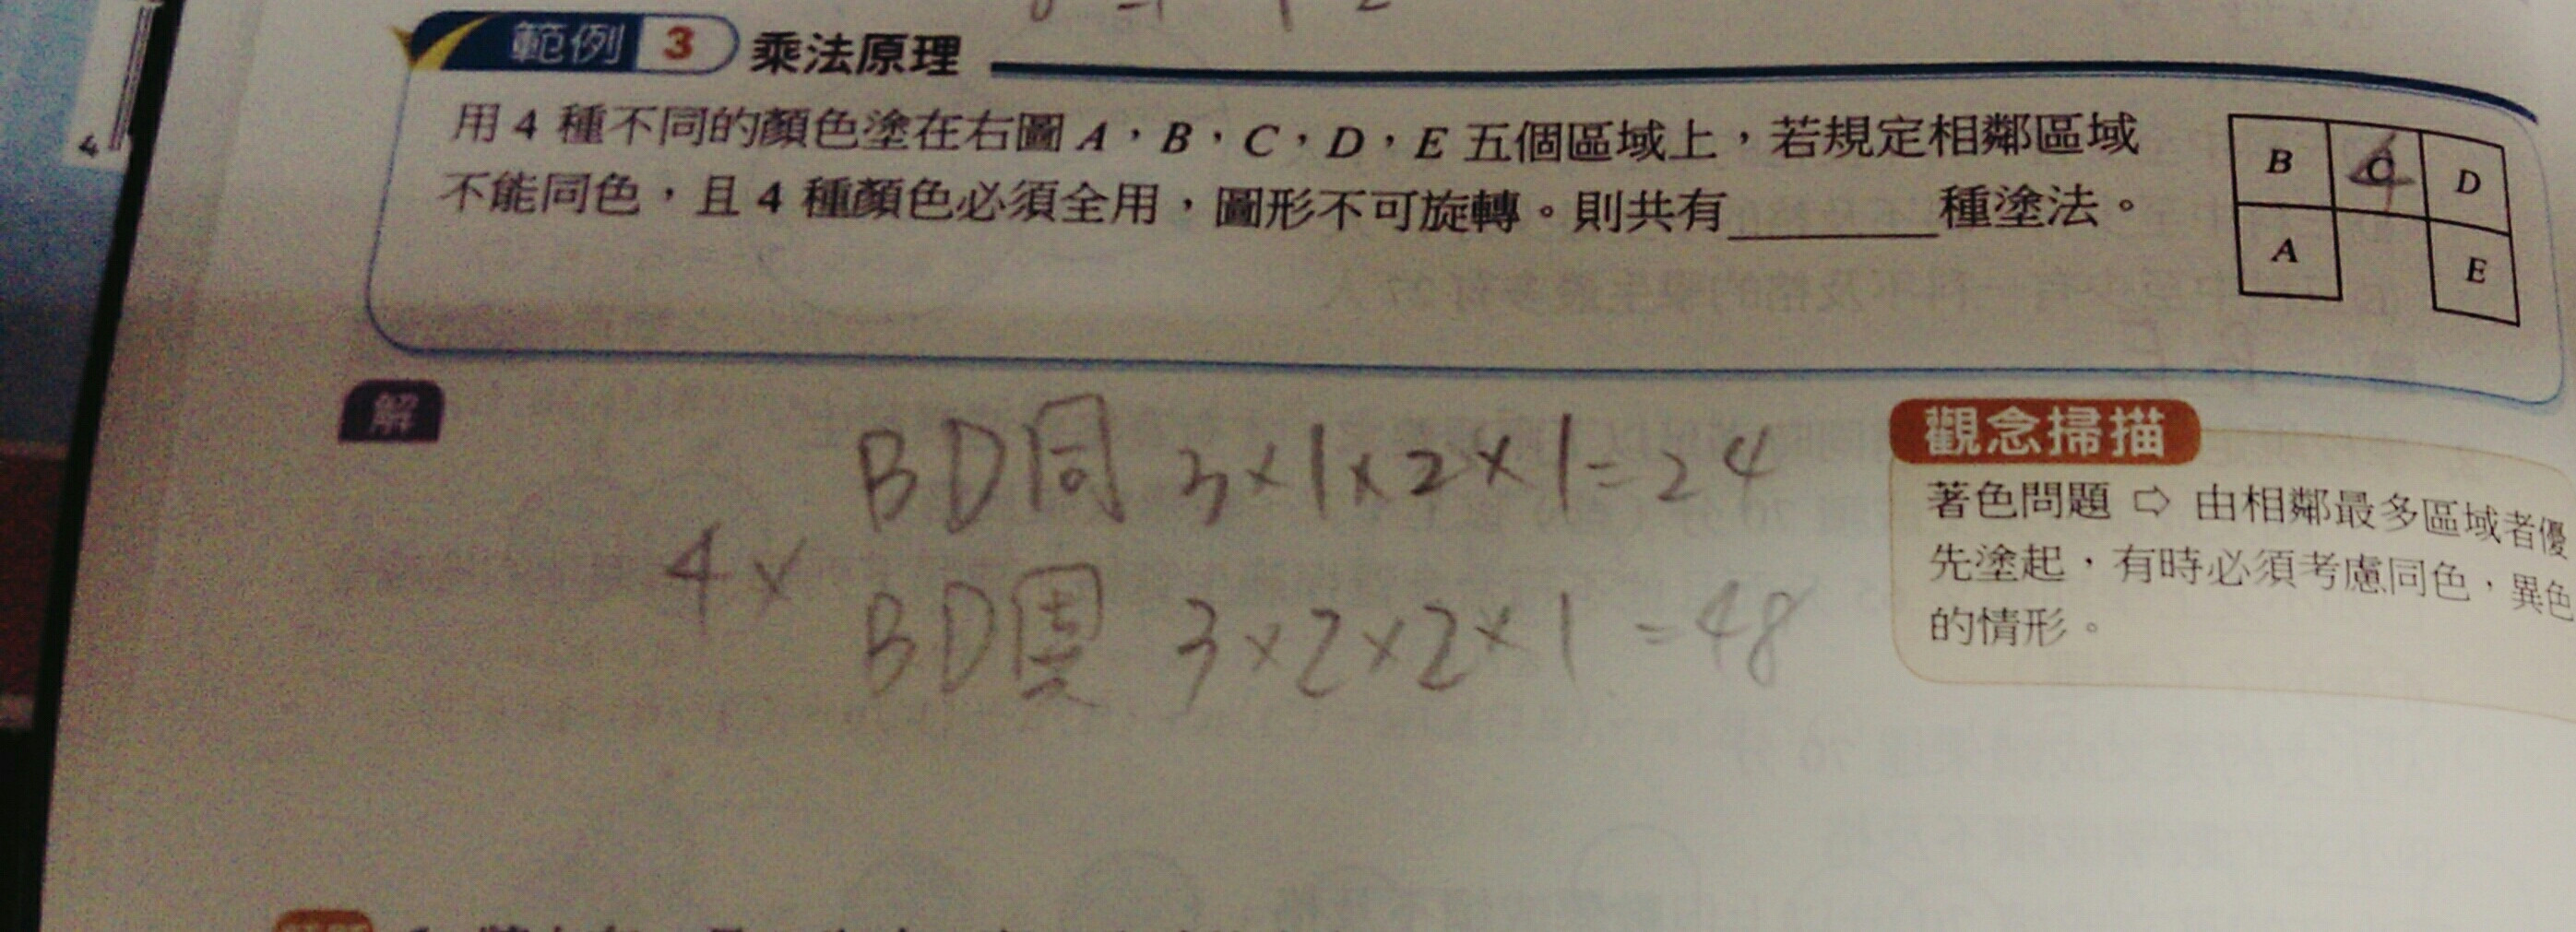 4
範例 3 乘法原理
用 4 種不同的顏色塗在右圖 A，B，C，D，E 五個區域上，若規定相鄰區域
不能同色，且 4 種顏色必須全用，圖形不可旋轉。則共有______種塗法。
B C D
A E
解
BD同 3×1×2×1=24
4×
BD異 3×2×2×1=48
觀念掃描
著色問題 ⇨ 由相鄰最多區域者優
先塗起，有時必須考慮同色，異色
的情形。